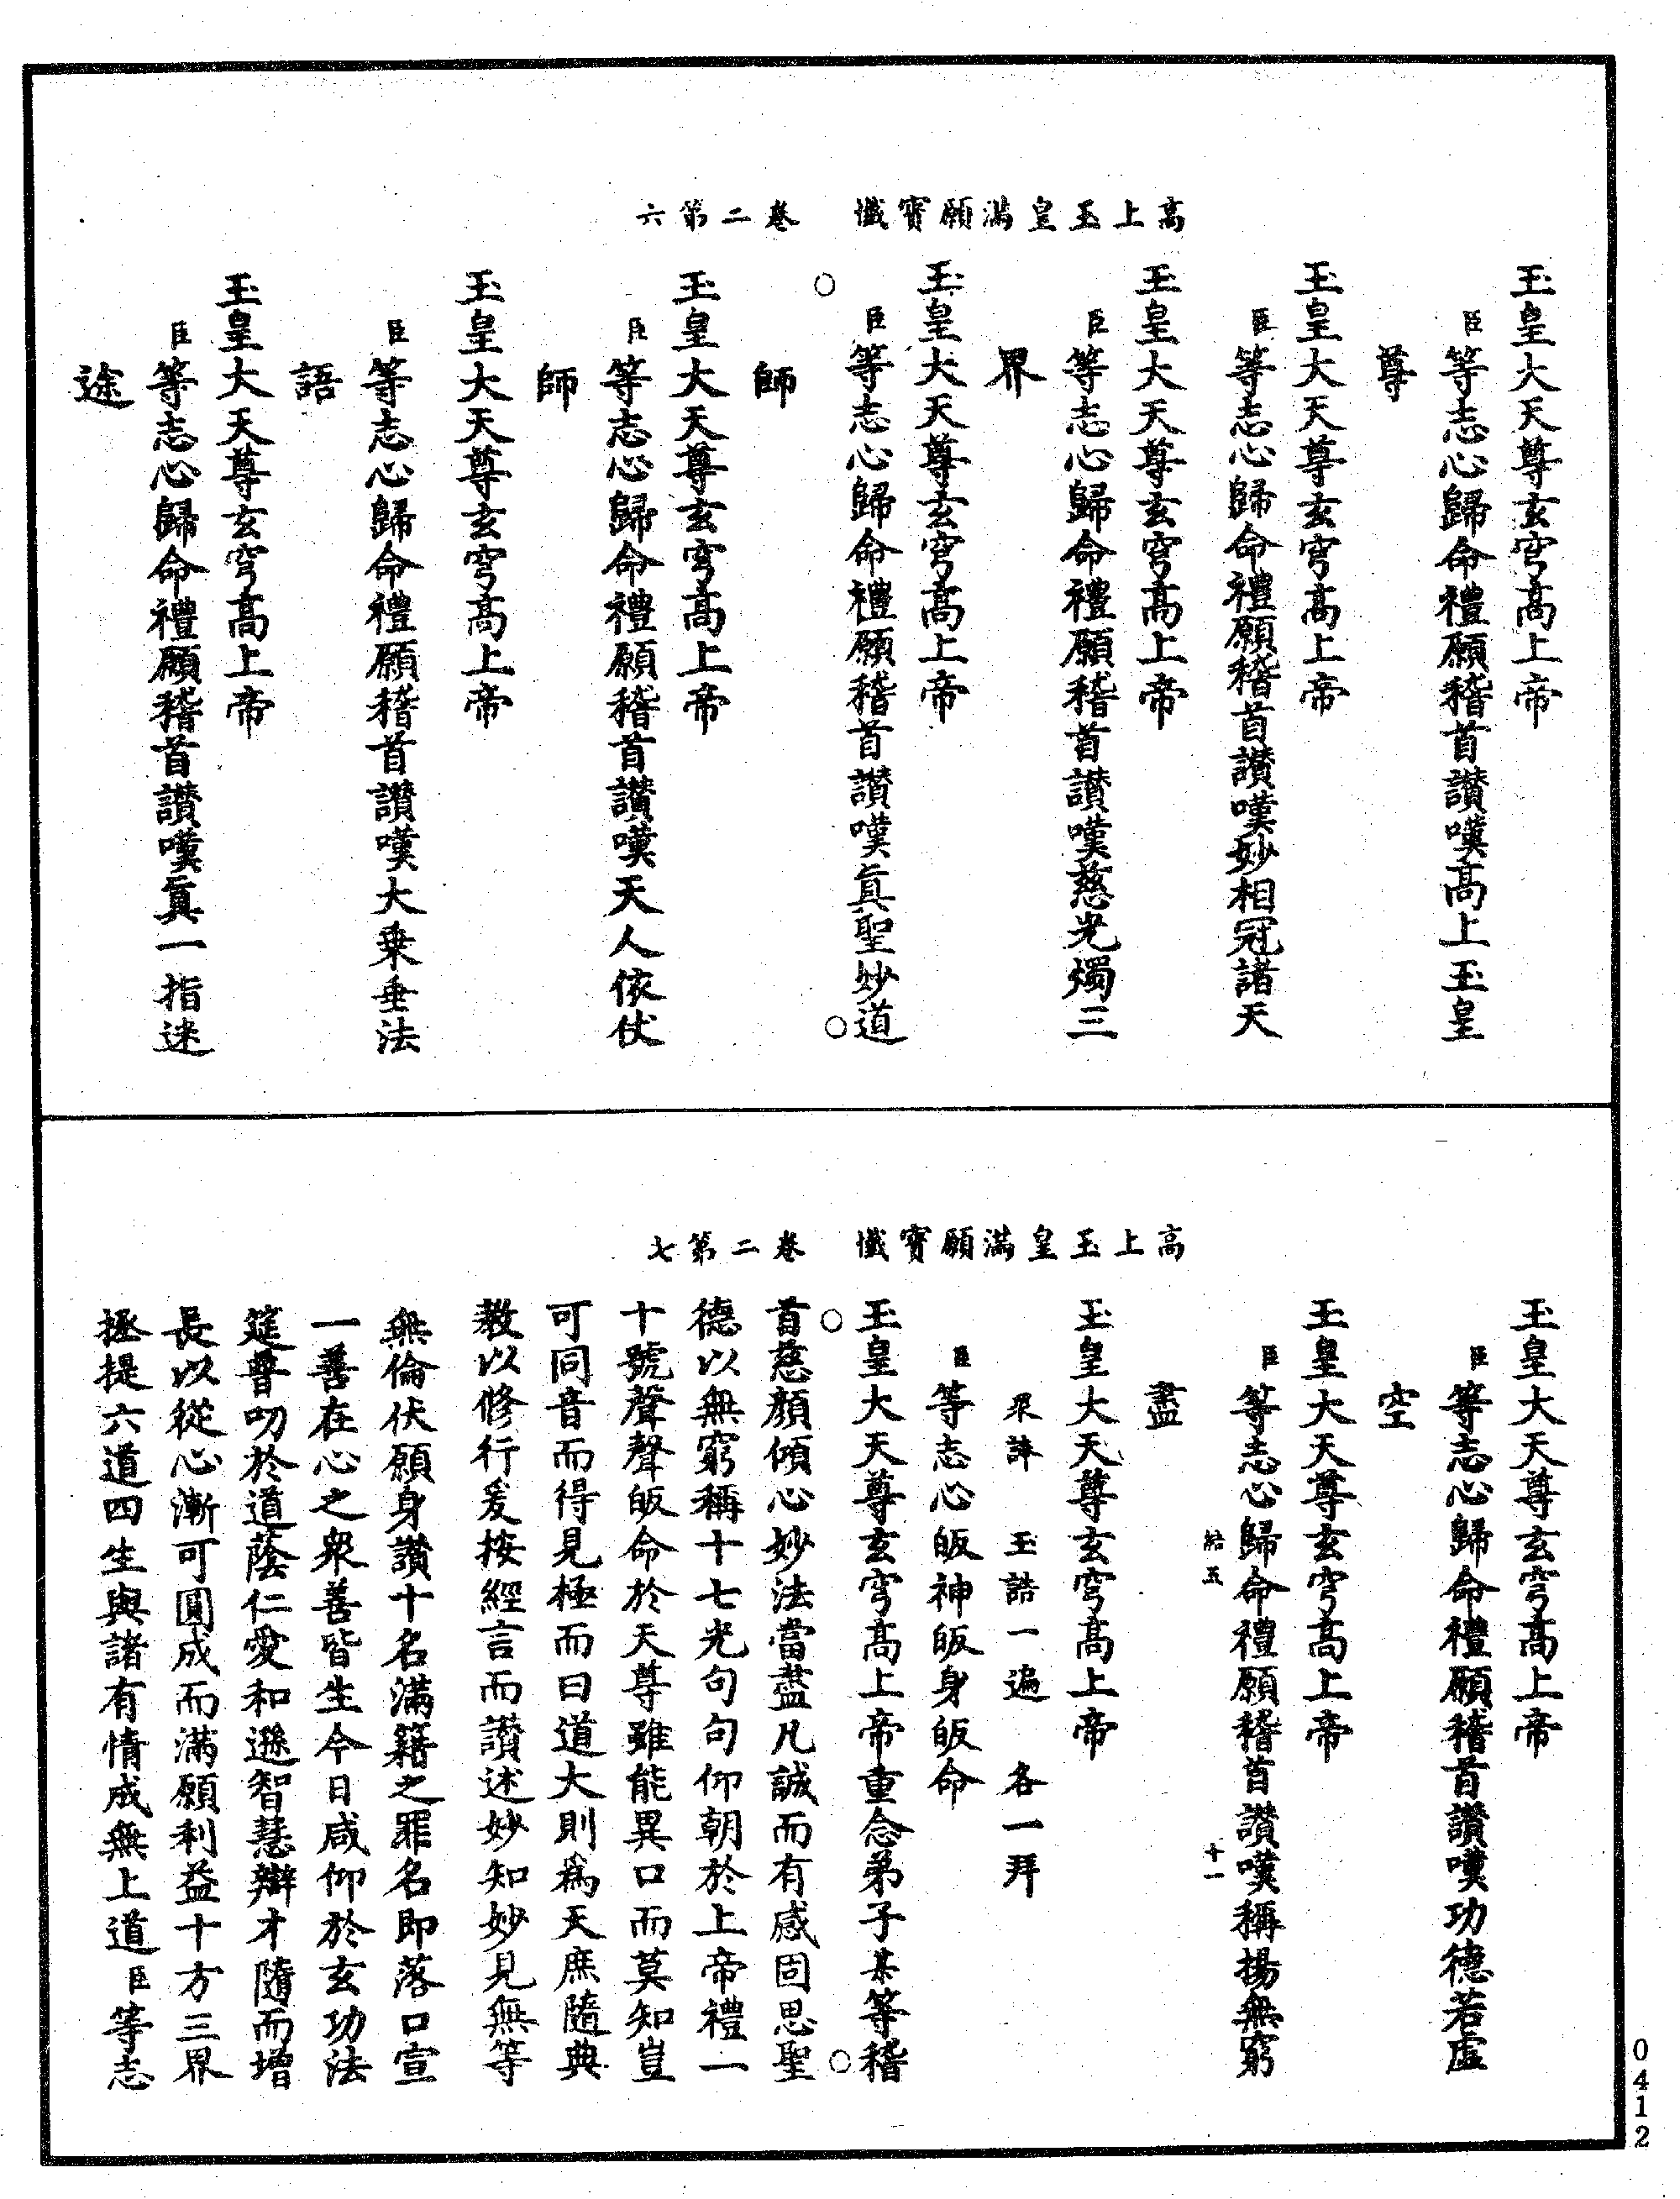 高上玉皇滿願寶懺　卷二第六
玉皇大天尊玄穹高上帝
臣等志心歸命禮願稽首讃嘆高上玉皇
尊
玉皇大天尊玄穹高上帝
臣等志心歸命禮願稽首讃嘆妙相冠諸天
玉皇大天尊玄穹高上帝
臣等志心歸命禮願稽首讃嘆慈光燭三
界
玉皇大天尊玄穹高上帝
臣等志心歸命禮願稽首讃嘆眞聖妙道
師
玉皇大天尊玄穹高上帝
臣等志心歸命禮願稽首讃嘆天人依仗
師
玉皇大天尊玄穹高上帝
臣等志心歸命禮願稽首讃嘆大乗垂法
語
玉皇大天尊玄穹高上帝
臣等志心歸命禮願稽首讃嘆眞一指迷
途
高上玉皇滿願寶懺　卷二第七
玉皇大天尊玄穹高上帝
臣等志心歸命禮願稽首讃嘆功德若虛
空
玉皇大天尊玄穹高上帝
臣等志心歸命禮願稽首讃嘆稱揚無窮
結五　十一
盡
玉皇大天尊玄穹高上帝
衆誦　玉誥一遍　各一拜
臣等志心皈神皈身皈命
玉皇大天尊玄穹高上帝重念弟子某等稽
首慈顏傾心妙法當盡凡誠而有感固思聖
德以無窮稱十七光句句仰朝於上帝禮一
十號聲聲皈命於天尊雖能異口而莫知豈
可同音而得見極而曰道大則爲天庶隨典
教以修行爰按經言而讃述妙知妙見無等
無倫伏願身讃十名滿籍之罪名即落口宣
一善在心之衆善皆生今日咸仰於玄功法
筵普叨於道蔭仁愛和遜智慧辯才隨而增
長以從心漸可圓成而滿願利益十方三界
拯提六道四生與諸有情成無上道臣等志
0412